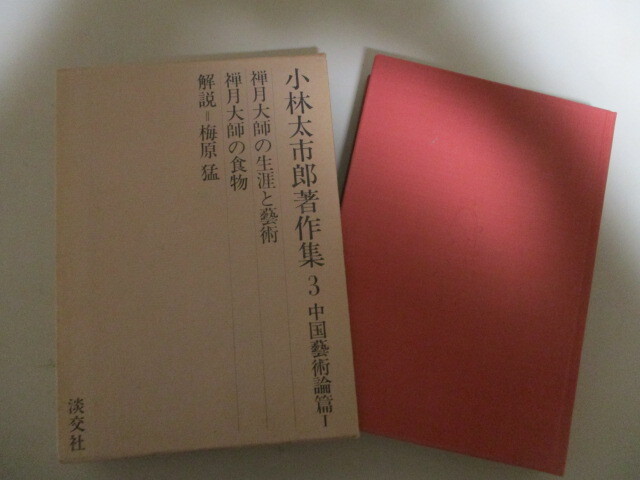 小林太市郎著作集3 中国藝術論篇Ⅰ
禅月大師の生涯と藝術
禅月大師の食物
解説=梅原猛
淡交社